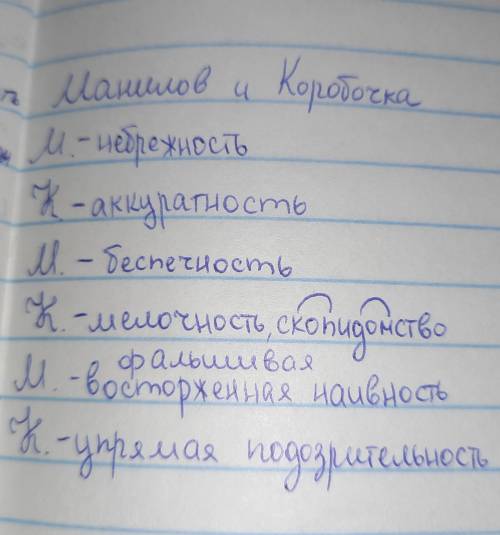 Манилов и Коробочка
М. - небрежность
К - аккуратность
М. - беспечность
К. - мелочность, скопидомство
фальшивая
М. - восторженная наивность
К. - упрямая подозрительность